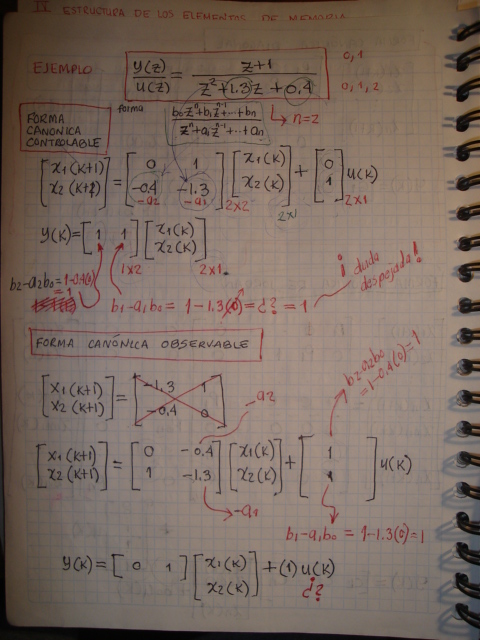 II ESTRUCTURA DE LOS ELEMENTOS DE MEMORIA
EJEMPLO
y(z)/u(z) = z+1 / z² + 1.3z + 0.4
0,1
0,1,2
→ n=2
forma
b₀zⁿ + b₁zⁿ⁻¹ + ... + bₙ / zⁿ + a₁zⁿ⁻¹ + ... + aₙ
FORMA
CANONICA
CONTROLABLE
[x₁(k+1)] = [0 1] [x₁(k)] + [0] u(k)
[x₂(k+1)] [-0.4 -1.3] [x₂(k)] [1]
-a₂ -a₁ 2x2 2x1 2x1
y(k) = [1 1] [x₁(k)]
[x₂(k)]
1x2 2x1
b₂-a₂b₀=1-0.4(0)
=1
b₁-a₁b₀ = 1-1.3(0) = ¿? = 1
¡ duda
despejada!
FORMA CANÓNICA OBSERVABLE
[x₁(k+1)] = [-1.3 1]
[x₂(k+1)] [-0.4 0]
-a₂
b₂-a₂b₀
=1-0.4(0)=1
[x₁(k+1)] = [0 -0.4] [x₁(k)] + [1] u(k)
[x₂(k+1)] [1 -1.3] [x₂(k)] [1]
→ -a₁
b₁-a₁b₀ = 1-1.3(0)=1
y(k) = [0 1] [x₁(k)] + (1) u(k)
[x₂(k)]
¿?